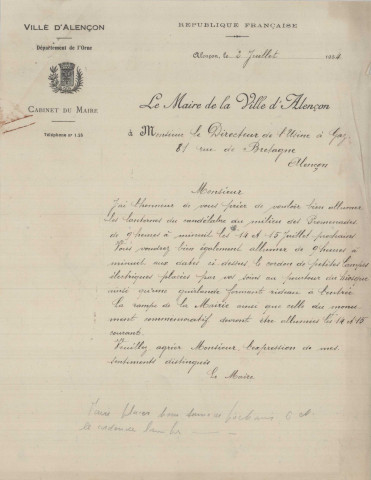 VILLE D'ALENÇON
Département de l'Orne
CABINET DU MAIRE
Téléphone n° 1.25
REPUBLIQUE FRANÇAISE
Alençon, le 2 Juillet
Le Maire de la Ville d'Alençon
à Monsieur le Directeur de l'Usine à Gaz
81 rue de Bretagne
Alençon
Monsieur
J'ai l'honneur de vous prier de vouloir bien allumer
les lanternes du candélabre du milieu des Promenades
de 9 heures à minuit les 14 et 15 juillet prochains
Vous voudrez bien également allumer de 9 heures à
minuit aux dates ci-dessus le cordon de petites lampes
électriques placées par vos soins au pourtour du kiosque
ainsi qu'une guirlande formant rideau à l'entrée
La rampe de la Mairie ainsi que celle du monu
ment commémoratif devront être allumées les 14 et 15
courant.
Veuillez agréer Monsieur l'expression de mes
sentiments distingués
Le Maire